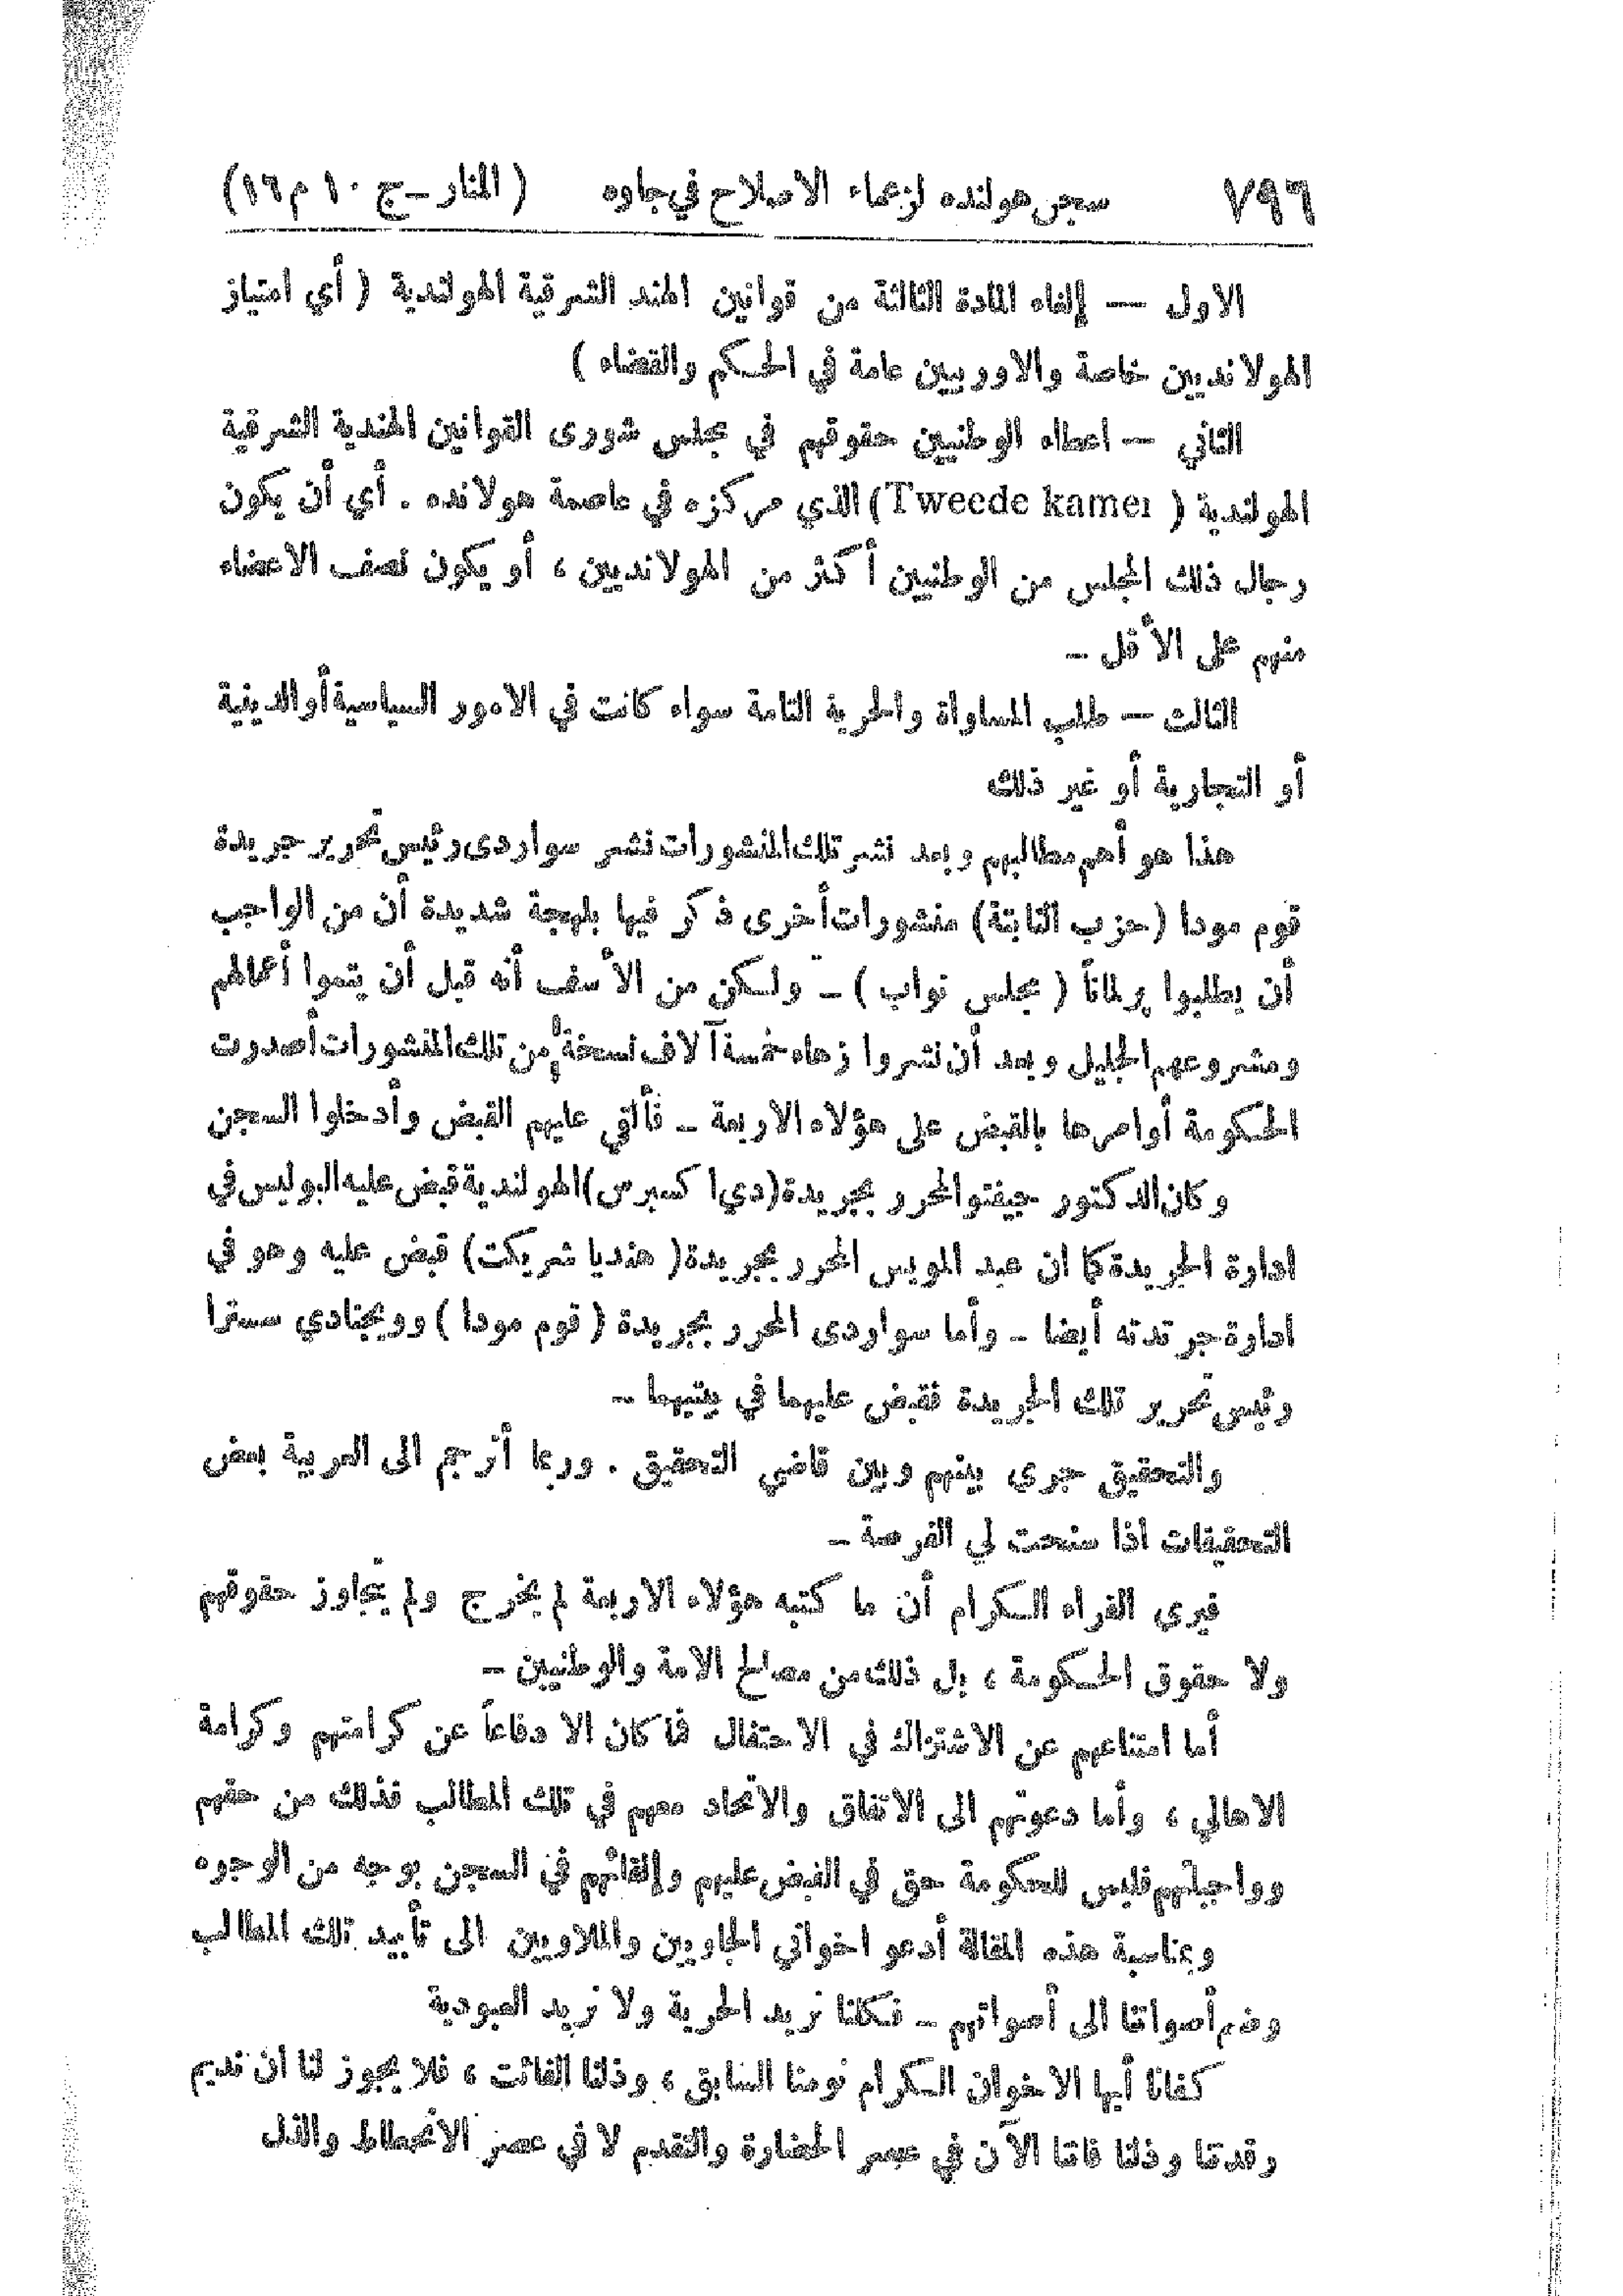 ٧٩٦ سجن هولنده لزعماء الاصلاح في جاوه (المنار ــ ج ١٠ م ١٦)
الاول — إلغاء المادة الثالثة من قوانين الهند الشرقية الهولندية (أي امتياز
الهولانديين خاصة والاوربيين عامة في الحكم والقضاء)
الثاني — اعطاء الوطنيين حقوقهم في مجلس شورى القوانين الهندية الشرقية
الهولندية (Tweede kamer) الذي مركزه في عاصمة هولانده . أي أن يكون
رجال ذلك المجلس من الوطنيين أكثر من الهولانديين ، أو يكون نصف الاعضاء
منهم على الأقل ــ
الثالث — طلب المساواة والحرية التامة سواء كانت في الامور السياسية أو الدينية
أو التجارية أو غير ذلك
هذا هو أهم مطالبهم وبعد نشر تلك المنشورات نشر سواردى رئيس تحرير جريدة
قوم مودا (حزب الثابتة) منشورات أخرى ذكر فيها بلهجة شديدة أن من الواجب
أن يطلبوا برلماناً (مجلس نواب) ــ ولكن من الأسف أنه قبل أن يتموا أعمالهم
ومشروعهم الجليل وبعد أن نشروا زهاء خمسة آلاف نسخة من تلك المنشورات أصدرت
الحكومة أوامرها بالقبض على هؤلاء الاربعة ــ فألقي عليهم القبض وأدخلوا السجن
وكان الدكتور جيفتو المحرر بجريدة (دي اكسبرس) الهولندية قبض عليه البوليس في
ادارة الجريدة كما ان عبد المويس المحرر بجريدة (هنديا شريكت) قبض عليه وهو في
ادارة جرتدته أيضا ــ وأما سواردى المحرر بجريدة (قوم مودا) وويجنادي سسترا
رئيس تحرير تلك الجريدة فقبض عليهما في بيتيهما ــ
والتحقيق جرى بينهم وبين قاضي التحقيق . وربما أترجم الى العربية بعض
التحقيقات اذا سنحت لي الفرصة ــ
فيرى القراء الكرام أن ما كتبه هؤلاء الاربعة لم يخرج ولم يتجاوز حقوقهم
ولا حقوق الحكومة ، بل ذلك من مصالح الامة والوطنيين ــ
أما امتناعهم عن الاشتراك في الاحتفال فما كان الا دفاعاً عن كرامتهم وكرامة
الاهالي ، وأما دعوتهم الى الاتفاق والاتحاد معهم في تلك المطالب فذلك من حقهم
وواجباتهم فليس للحكومة حق في القبض عليهم وإلقائهم في السجن بوجه من الوجوه
وبمناسبة هذه المقالة أدعو اخواني الجاويين والملاويين الى تأييد تلك المطالب
وضم أصواتنا الى أصواتهم ــ فكلنا نريد الحرية ولا نريد العبودية
كفانا أيها الاخوان الكرام نومنا السابق ، وذلنا الفائت ، فلا يجوز لنا ان نديم
رقدتنا وذلنا فاننا الآن في عصر الحضارة والتقدم لا في عصر الانحطاط والذل